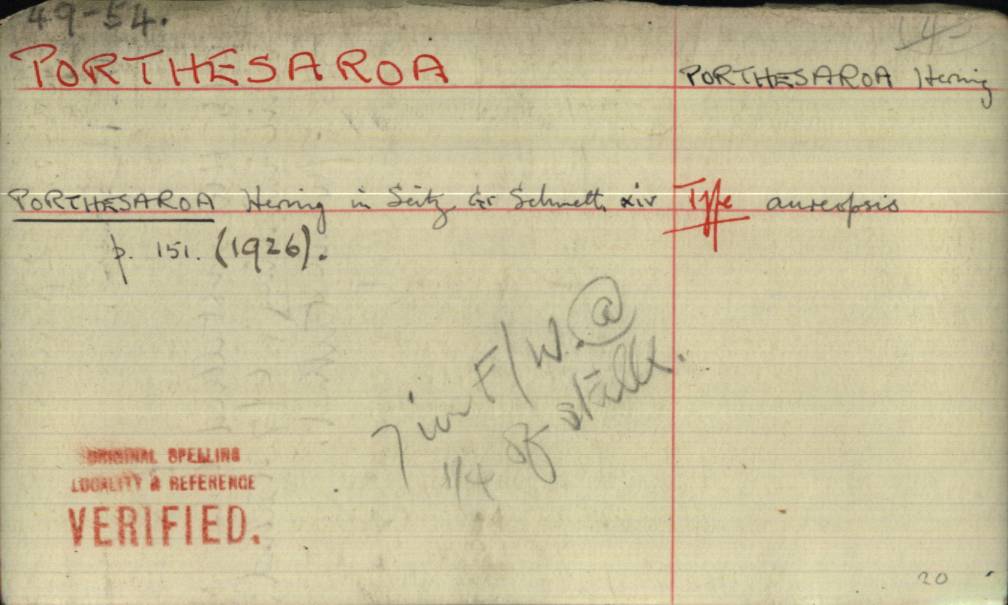 49-54.
PORTHESAROA
PORTHESAROA Hering
PORTHESAROA Hering in Seitz Gr Schmett. xiv Type aureopsis
p. 151. (1926).
F/W. @
1/4 of
ORIGINAL SPELLING
LOCALITY & REFERENCE
VERIFIED.
20